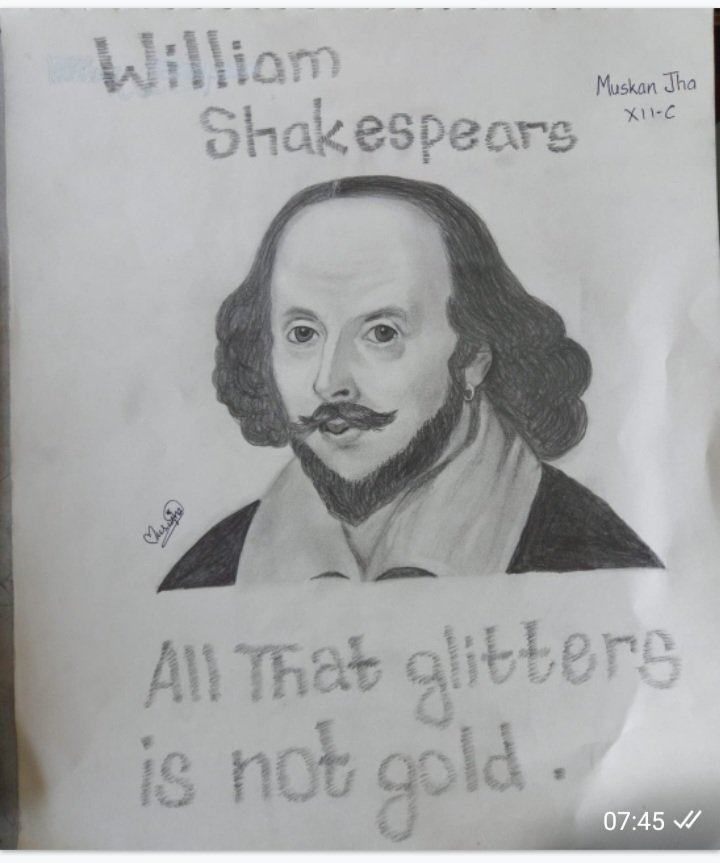 William
Shakespears
Muskan Jha
XII-C
All That glitters
is not gold .
07:45